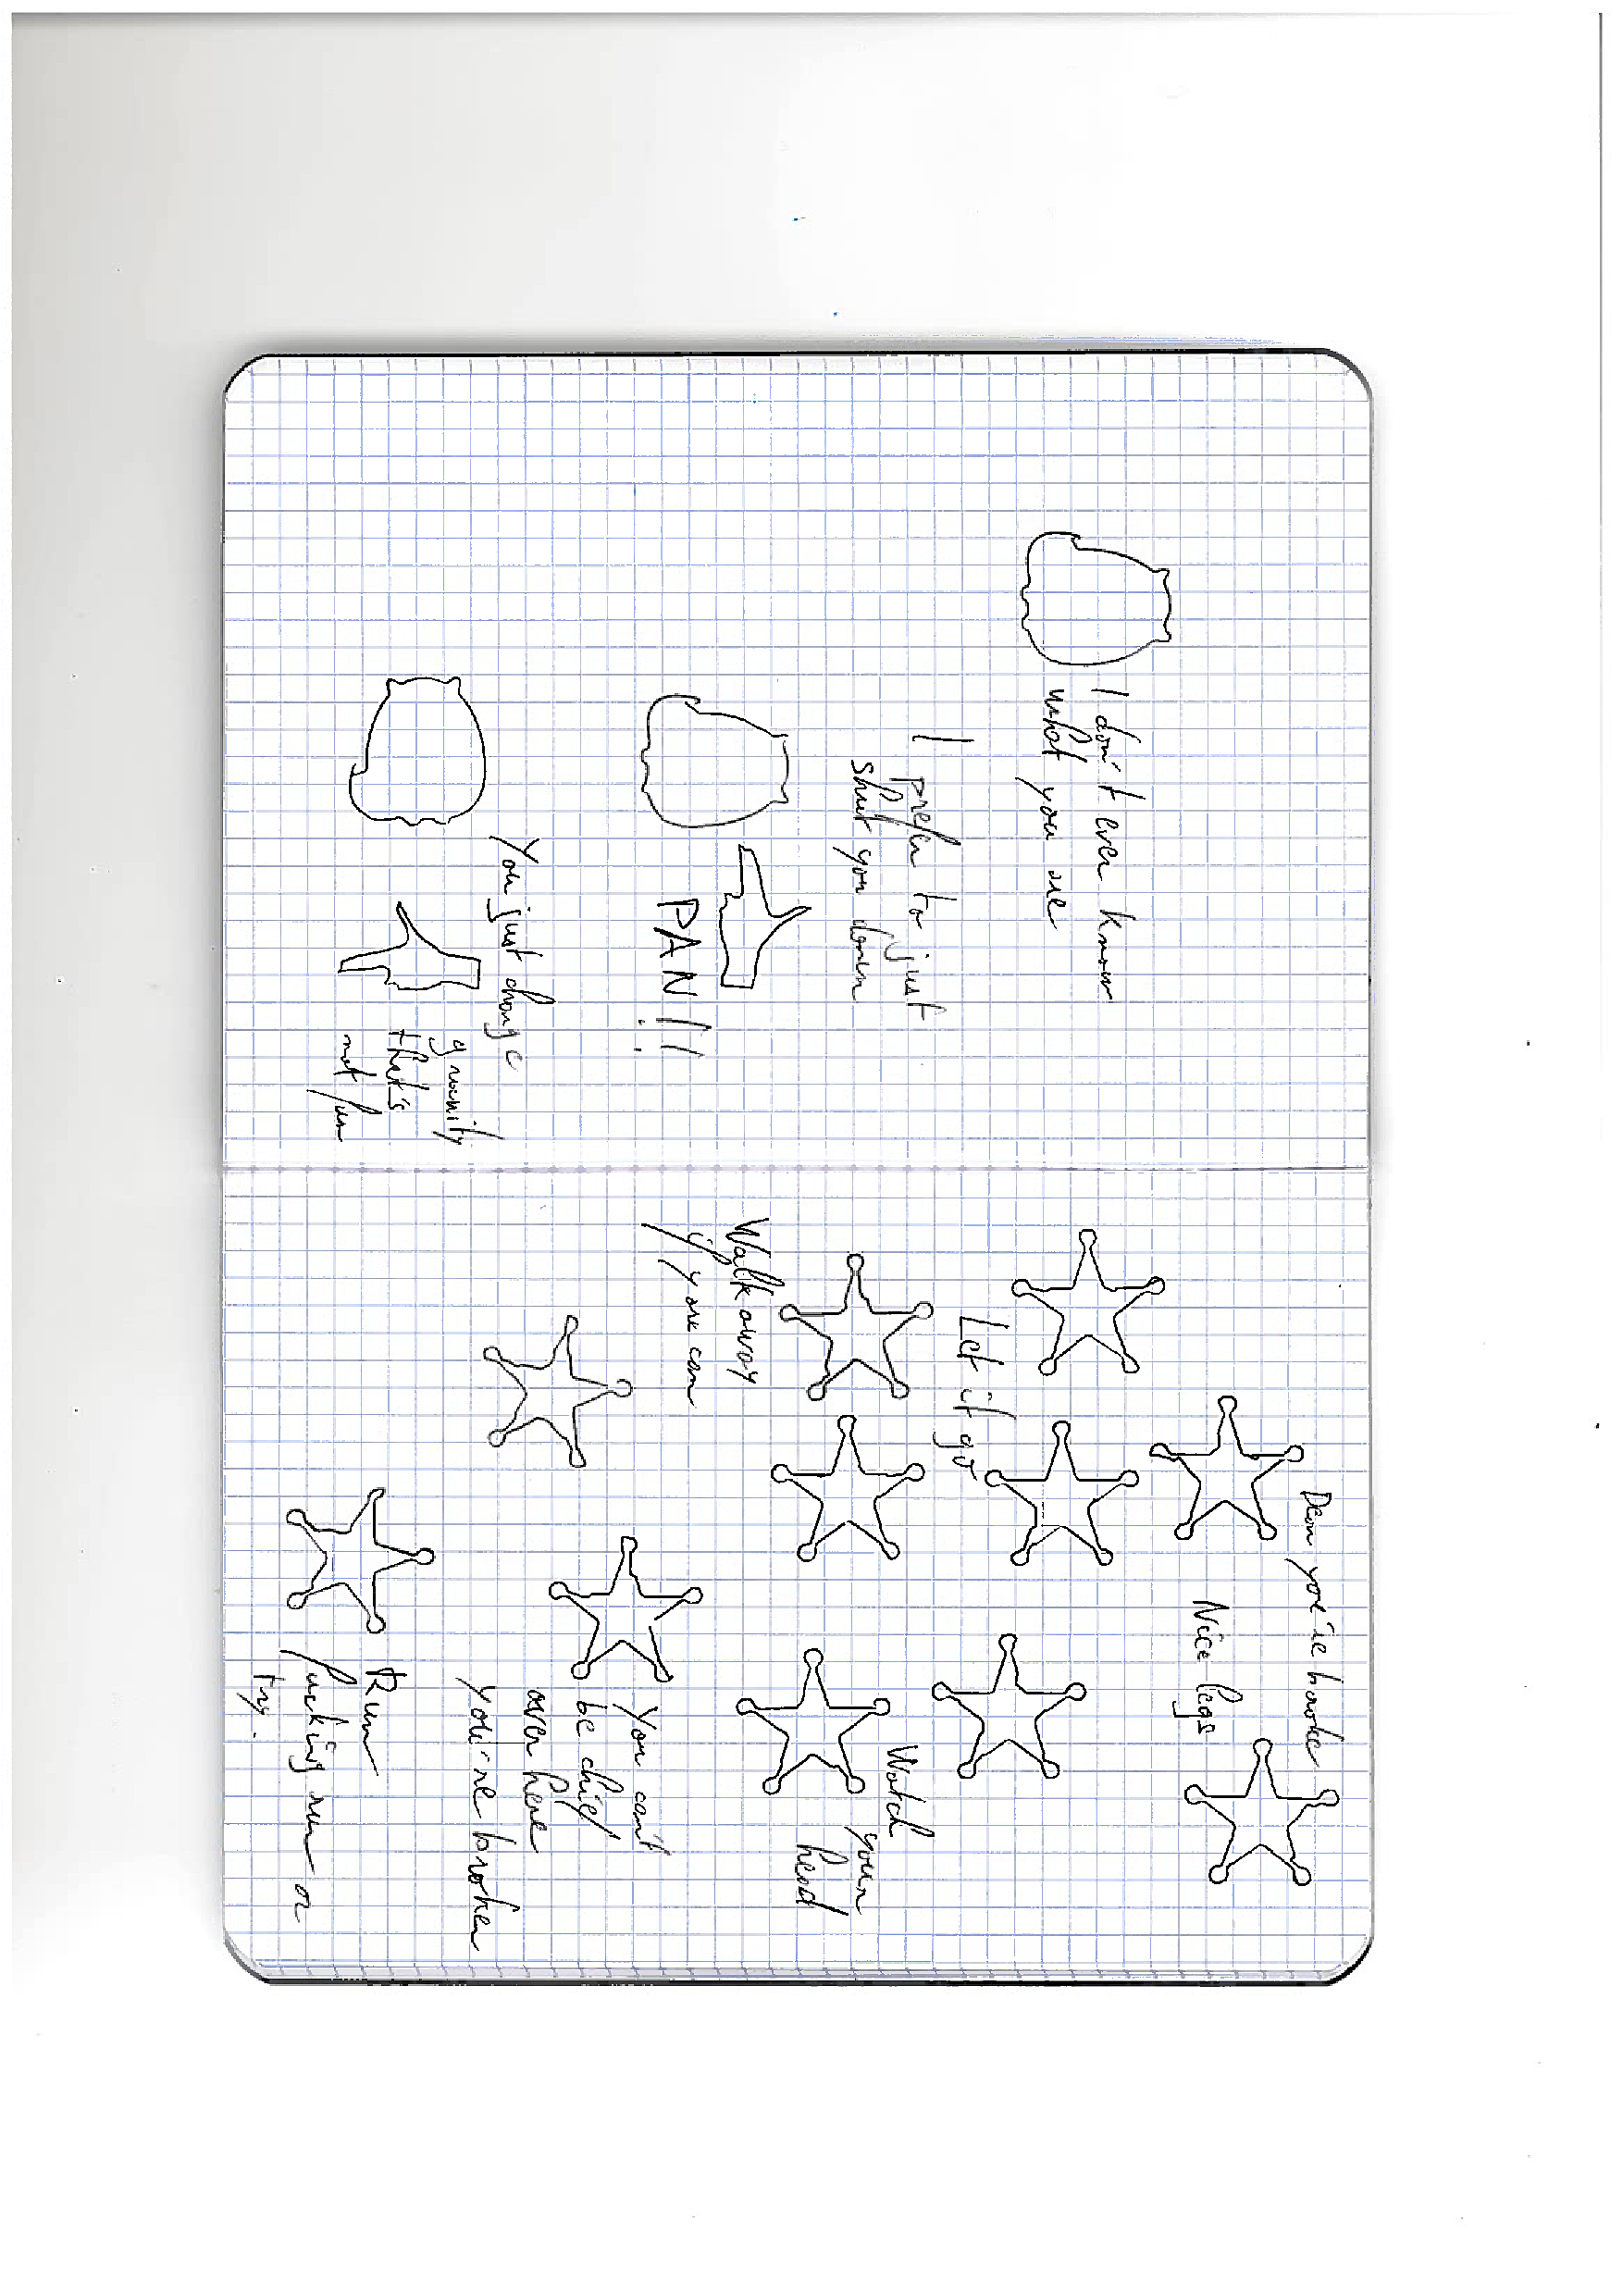 I don't even know
what you are
I prefer to just
shut you down
PAN!!
You just change
gravity
that's
not fun
Damn you're broke
Nice legs
Let it go
Watch
your
head
Walk away
if you can
You can't
be chief
over here
You're broken
Run
fucking run or
try.